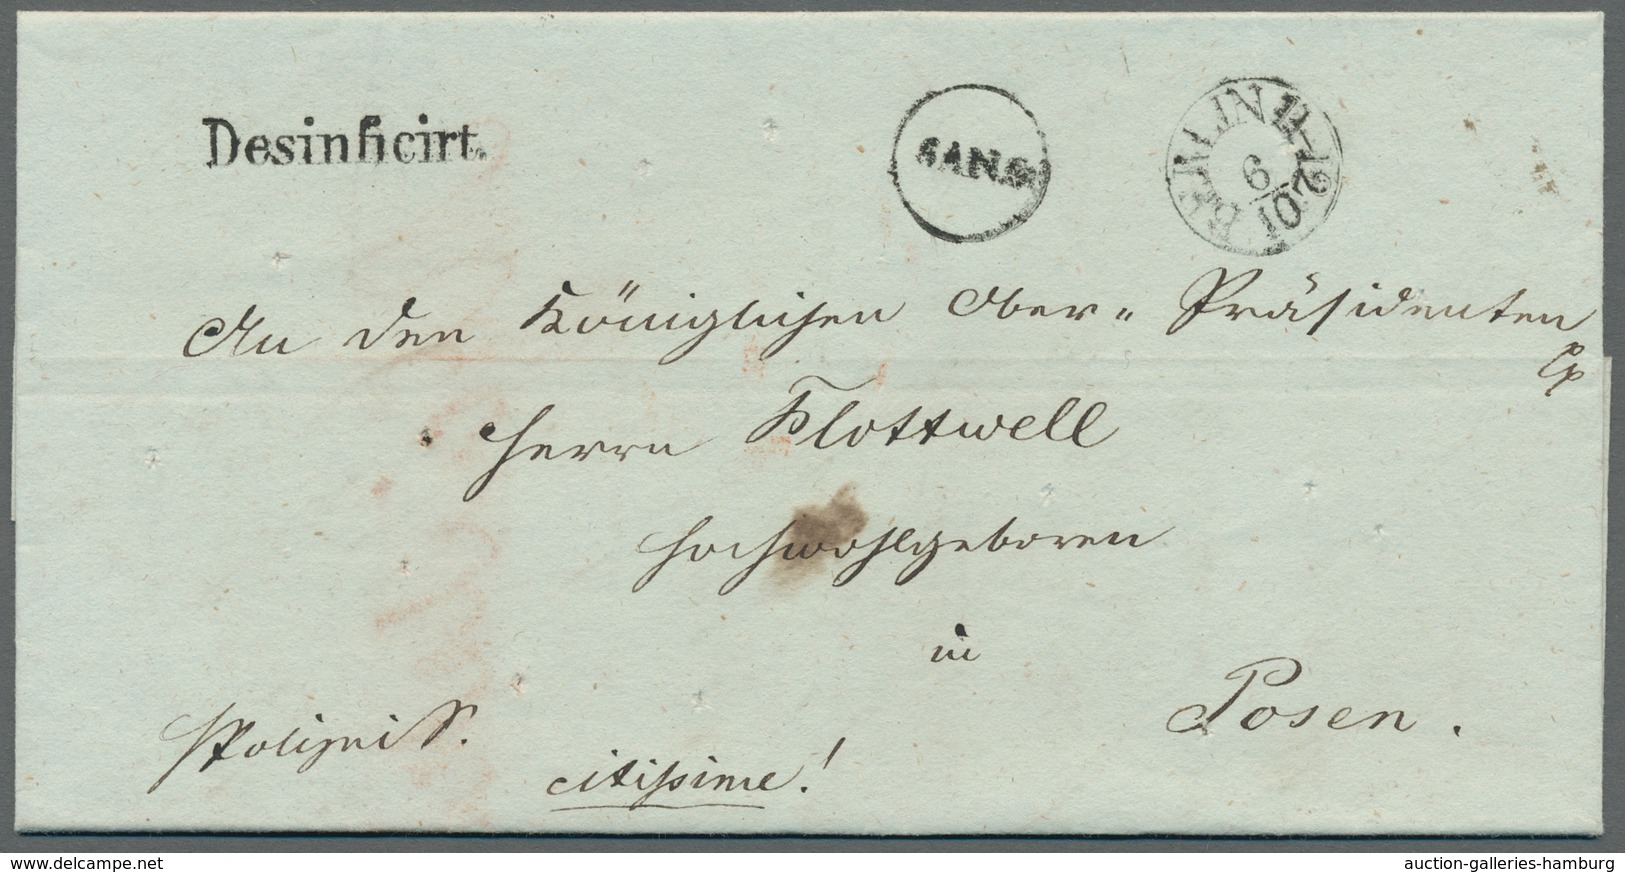 Desinficirt.
SANS.
BERLIN 11-12
6
10
An den Königlichen Ober-Präsidenten
Herrn Flottwell
Hochwohlgeboren
in
Posen.
citissime!
www.delcampe.net
auction-galleries-hamburg